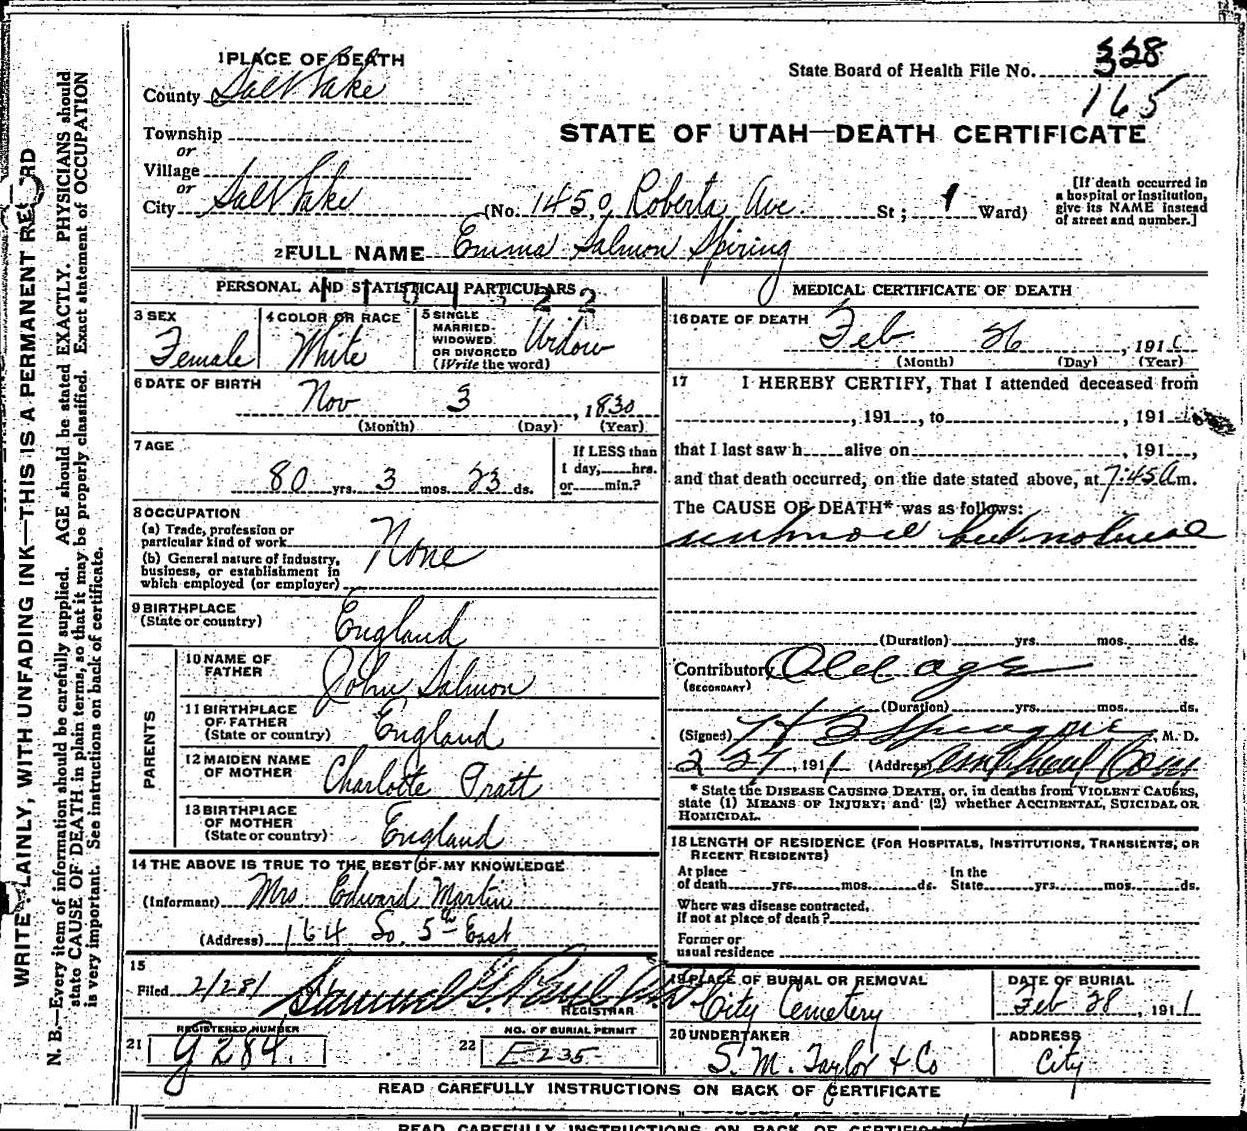 WRITE PLAINLY, WITH UNFADING INK—THIS IS A PERMANENT RECORD
N. B.—Every item of information should be carefully supplied. AGE should be stated EXACTLY. PHYSICIANS should
state CAUSE OF DEATH in plain terms, so that it may be properly classified. Exact statement of OCCUPATION
is very important. See instructions on back of certificate.
1 PLACE OF DEATH
County Salt Lake
Township
or
Village
or
City Salt Lake
State Board of Health File No. 328
165
STATE OF UTAH—DEATH CERTIFICATE
(No. 1450 Roberta Ave. St; 1 Ward)
[If death occurred in
a hospital or institution,
give its NAME instead
of street and number.]
2 FULL NAME Emma Salmon Spiring
PERSONAL AND STATISTICAL PARTICULARS
3 SEX
Female
4 COLOR OR RACE
White
5 SINGLE
MARRIED
WIDOWED
OR DIVORCED
(Write the word)
Widow
6 DATE OF BIRTH
Nov 3, 1830
(Month) (Day) (Year)
7 AGE
80 yrs. 3 mos. 23 ds.
If LESS than
1 day, hrs.
or min.?
8 OCCUPATION
(a) Trade, profession or
particular kind of work
(b) General nature of industry,
business, or establishment in
which employed (or employer)
None
9 BIRTHPLACE
(State or country)
England
PARENTS
10 NAME OF
FATHER
John Salmon
11 BIRTHPLACE
OF FATHER
(State or country)
England
12 MAIDEN NAME
OF MOTHER
Charlotte Pratt
13 BIRTHPLACE
OF MOTHER
(State or country)
England
14 THE ABOVE IS TRUE TO THE BEST OF MY KNOWLEDGE
(Informant) Mrs. Edward Martin
(Address) 164 So. 5th East
15
Filed 2/28/ 191
REGISTRAR
21 REGISTERED NUMBER
G 284.
22 NO. OF BURIAL PERMIT
E 235
MEDICAL CERTIFICATE OF DEATH
16 DATE OF DEATH
Feb 26, 1911
(Month) (Day) (Year)
17 I HEREBY CERTIFY, That I attended deceased from
, 191 , to , 191
that I last saw h alive on , 191 ,
and that death occurred, on the date stated above, at 7:45 A m.
The CAUSE OF DEATH* was as follows:
unknown but natural
(Duration) yrs. mos. ds.
Contributory Old age
(SECONDARY)
(Duration) yrs. mos. ds.
(Signed) M. D.
2 27, 1911 (Address)
* State the DISEASE CAUSING DEATH, or, in deaths from VIOLENT CAUSES,
state (1) MEANS OF INJURY; and (2) whether ACCIDENTAL, SUICIDAL OR
HOMICIDAL.
18 LENGTH OF RESIDENCE (FOR HOSPITALS, INSTITUTIONS, TRANSIENTS, OR
RECENT RESIDENTS)
At place
of death yrs. mos. ds.
In the
State yrs. mos. ds.
Where was disease contracted,
if not at place of death?
Former or
usual residence
19 PLACE OF BURIAL OR REMOVAL
City Cemetery
DATE OF BURIAL
Feb 28, 1911
20 UNDERTAKER
S. M. Taylor & Co
ADDRESS
City
READ CAREFULLY INSTRUCTIONS ON BACK OF CERTIFICATE